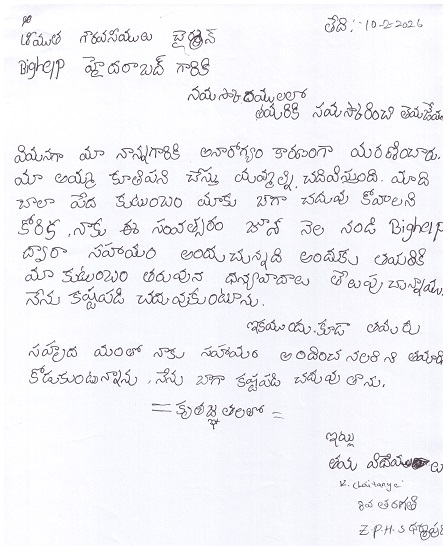 తేది:- 10-2-2026
శ్రీయుత గౌరవనీయులు చైర్మన్
Bighelp హైదరాబాద్ గారికి
నమస్కారములతో
తమరికి నమస్కరించి తెలుపు
ఏమనగా మా నాన్నగారికి అనారోగ్యం కారణంగా మరణించారు.
మా అమ్మ కూలిపని చేస్తు మమ్మల్ని చదివిస్తుంది. మాది
చాలా పేద కుటుంబం మాకు బాగా చదువు కోవాలని
కోరిక. నాకు ఈ సంవత్సరం జూన్ నెల నుండి Bighelp
ద్వారా సహాయం అందుచున్నది అందుకు తమరికి
మా కుటుంబం తరుపున ధన్యవాదాలు తెలుపుచున్నాము.
నేను కష్టపడి చదువుకుంటాను.
ఇకముందు కూడా తమరు
సహృద యంతో నాకు సహాయం
కోడుకుంటున్నాను. నేను బాగా కష్టపడి చదువుతాను.
= కృతజ్ఞతలతో =
ఇట్లు
తమ విధేయు
K. Chaitanya
తరగతి
Z.P.H.S